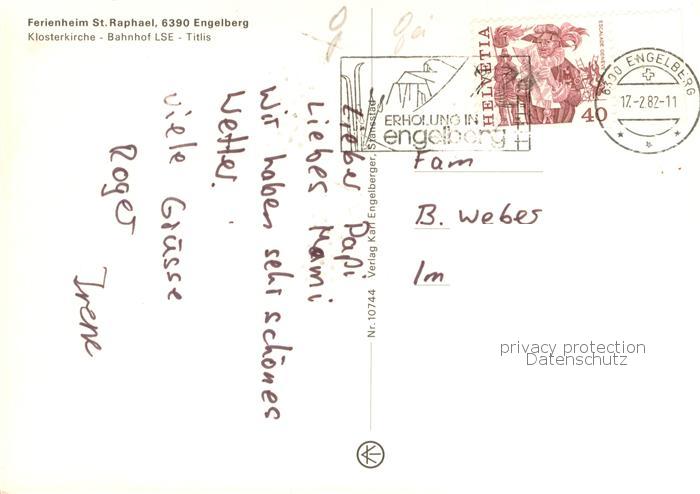 Ferienheim St. Raphael, 6390 Engelberg
Klosterkirche - Bahnhof LSE - Titlis
Lieber Papi
Liebes Mami
Wir haben sehr schönes
Wetter.
Viele Grüsse
Roger
Irene
Nr. 10744 Verlag Karl Engelberger, Stansstad
ERHOLUNG IN
engelberg
HELVETIA
ESCALADE GENÈVE
40
6390 ENGELBERG
17.-2.82-11
Fam
B. Weber
Im
privacy protection
Datenschutz